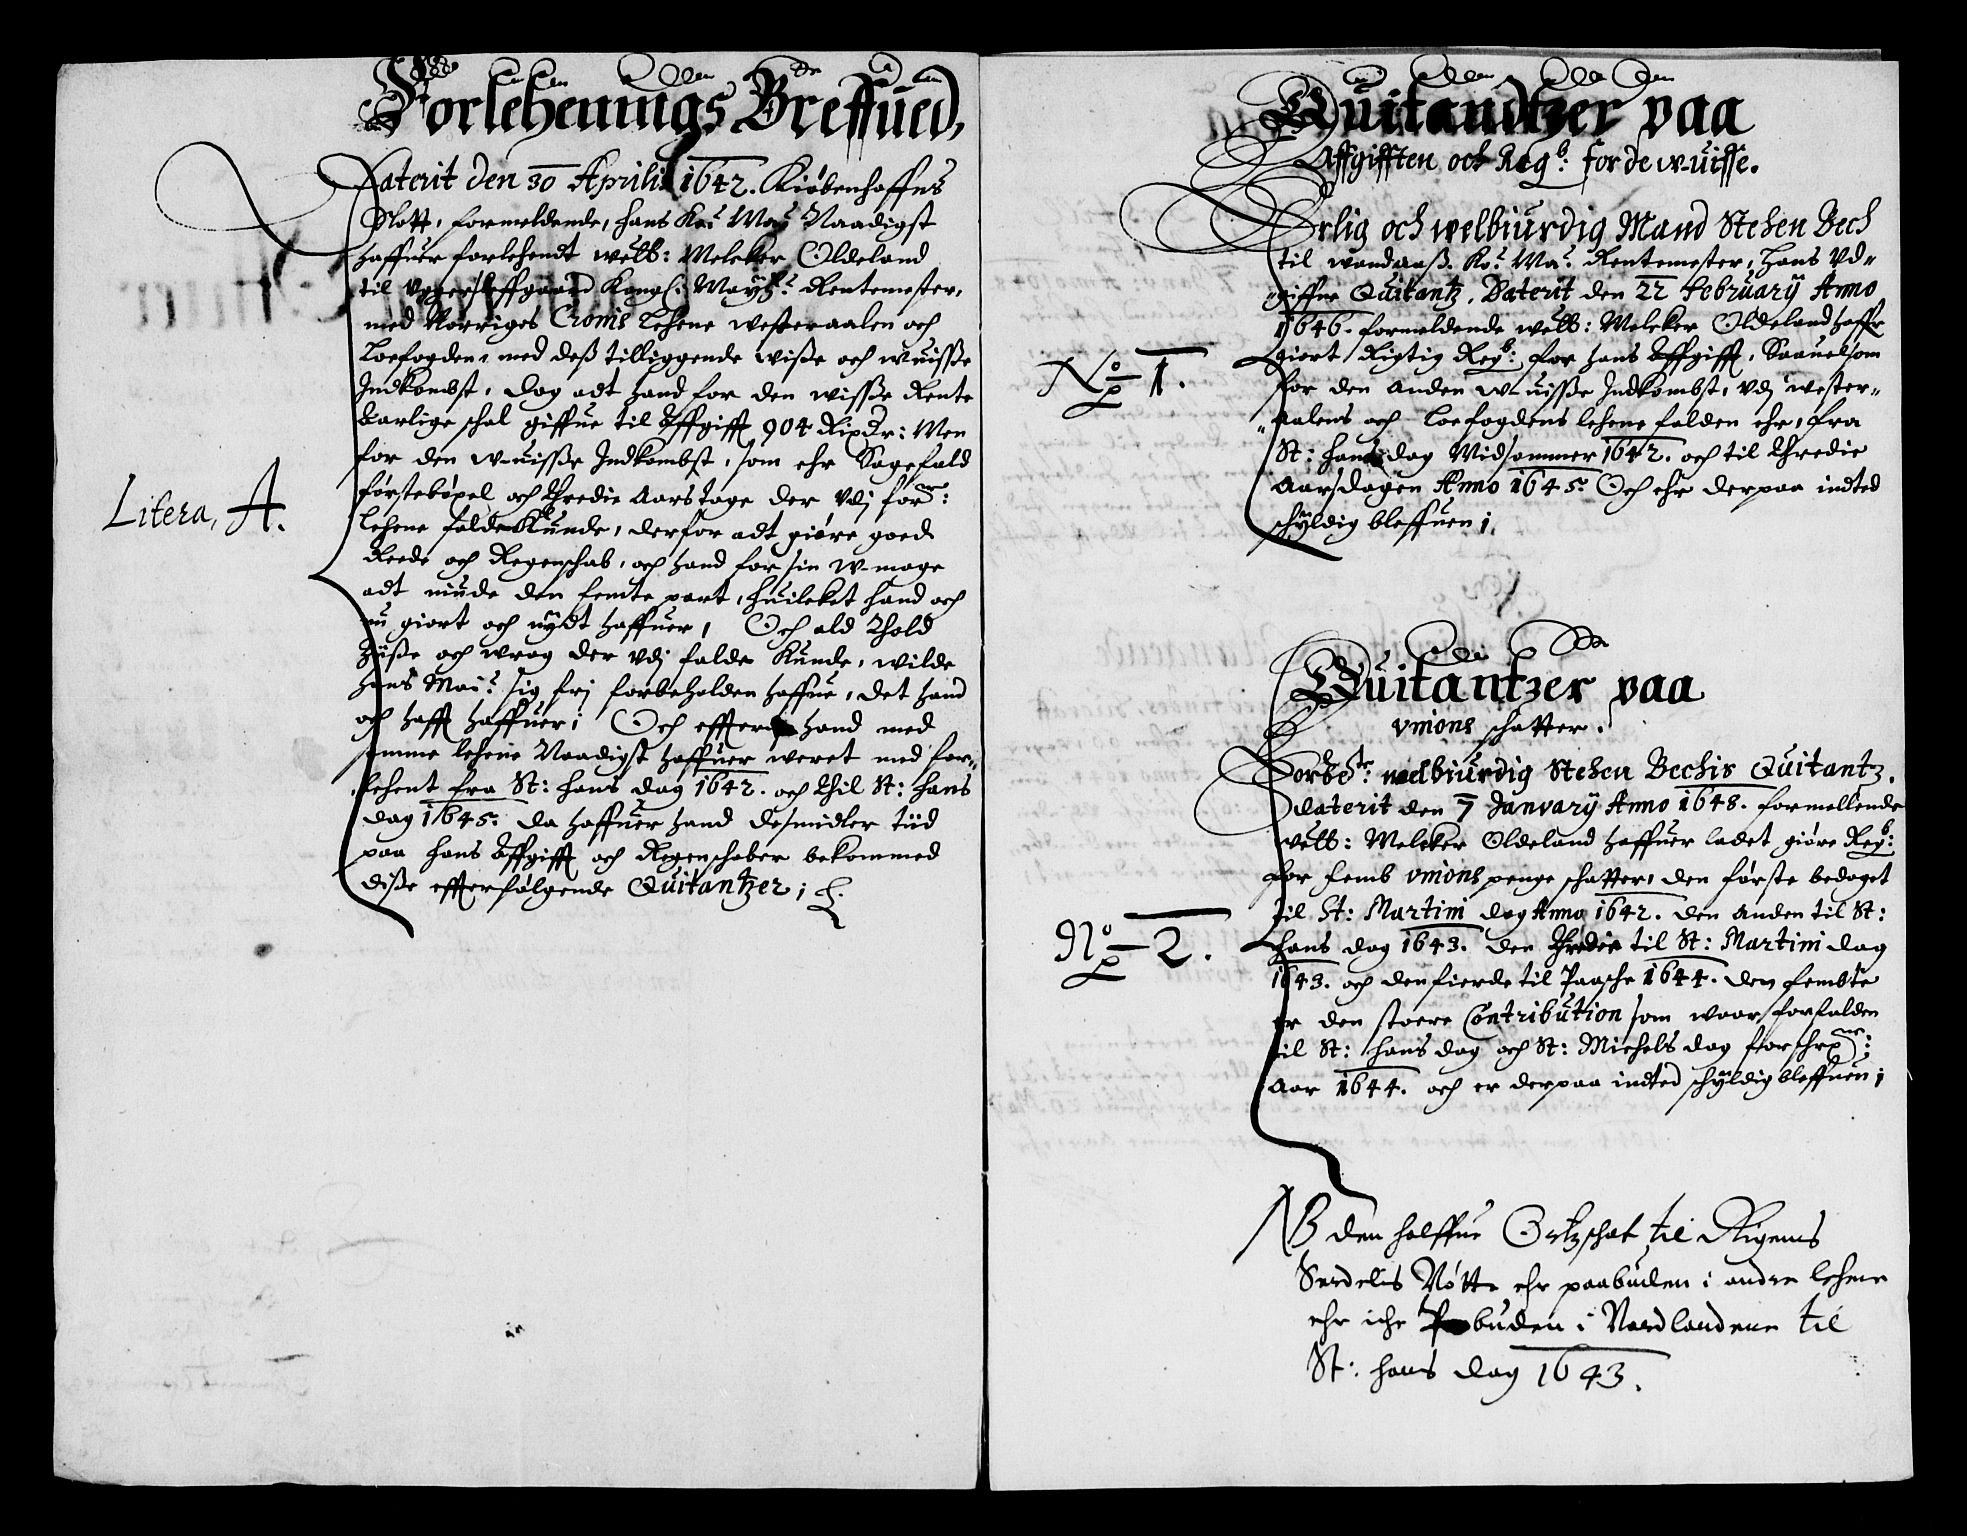 Forlehenings Breffued,
Daterit den 30 Aprilis 1642. Kiøbenhaffns
Slott, formeldende, hans Ko: May: Naadigst
haffuer forlehendt welb: Meleker Oldeland
til Uggersleffgaard Kongl. Maytz: Rentemester,
med Norriges Crons Lehene westeraalen och
Loefogden, med deß tilliggende wiße och wuisße
Indkombst, dog adt hand for den wisße Rente
Aarlige schal giffue til Affgifft 904 Rixdr: Men
for den w-uisße Indkombst, som ehr Sagefald
førstebøxel och thredie Aars tage der udj forne:
Lehene falde Kunde, derfor adt giøre goed
Reede och Regenschab, och hand for sin w-mage
adt niude den femte part, huileket hand och
nu giort och nydt haffuer, Och ald thold
Zyße och wrag der udj falde kunde, wilde
hans May: sig frj forbeholden haffue, det hand
och hafft haffuer; Och effterdj hand med
samme lehene Naadigst haffuer weret med for-
lehent fra St: hans dag 1642. och thil St: hans
dag 1645. da haffuer hand desmidler tiid
paa hans Affgifft och Regenschaber bekommed
diße effterfølgende Quitantzer;
Litera, A.
Quitandtzer paa
Affgifften och Regb: for de w-uisse.
Erlig och welbiurdig Mand Stehen Bech
til wandaaß. Ko: Ma: Rentemester, hans Ud-
giffne Quitantz. Daterit den 22 February Anno
1646. formeldende welb: Meleker Oldeland haffr
giort Rigtig Regb: for hans Affgifft, Saauelsom
for den anden w-uisße Indkombst, udj wester-
aalens och Loefogdens lehene falden ehr, fra
St: hans dag Midsommer 1642. och til thredie
Aarsdagen Anno 1645. Och ehr derpaa indted
schyldig bleffuen;
No 1.
Quitantzer paa
unions schatter.
Forbete: welbiurdig Stehen Bechis Quitantz.
daterit den 7 January Anno 1648. formellende
welb: Meleker Oldeland haffuer ladet giøre Regb:
for femb unions penge schatter, den første bedaget
til St: Martini dag Anno 1642. den anden til St:
hans dag 1643. den thredie til St: Martini dag
1643. och den fierde til Paasche 1644. den fembte
er den stoere Contribution som waar forfalden
til St: hans dag och St: Michels dag forschrne:
Aar 1644. och er derpaa indted schyldig bleffuen;
No 2.
NB den halffue Ortzschat til Rigens
Serdelis Nøtte ehr paabuden i andre lehene
ehr iche Paabuden i Nordlandene til
St: hans dag 1643.